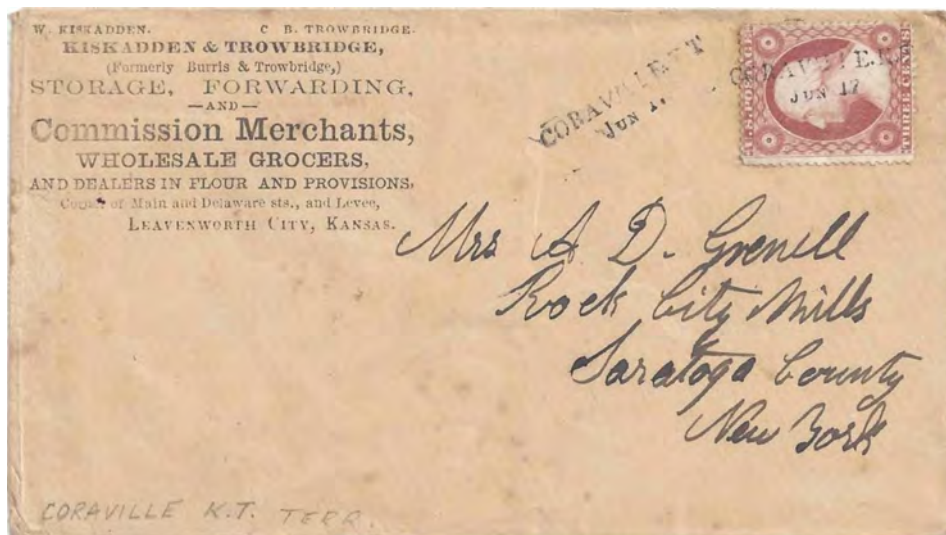 W. KISKADDEN. C. B. TROWBRIDGE.
KISKADDEN & TROWBRIDGE,
(Formerly Burris & Trowbridge,)
STORAGE, FORWARDING,
—AND—
Commission Merchants,
WHOLESALE GROCERS,
AND DEALERS IN FLOUR AND PROVISIONS,
Corner of Main and Delaware sts., and Levee,
LEAVENWORTH CITY, KANSAS.
JUN
JUN 17
U.S. POSTAGE
THREE CENTS
Mrs A. D. Grenell
Rock City Mills
Saratoga County
New York
CORAVILLE K.T. TERR.